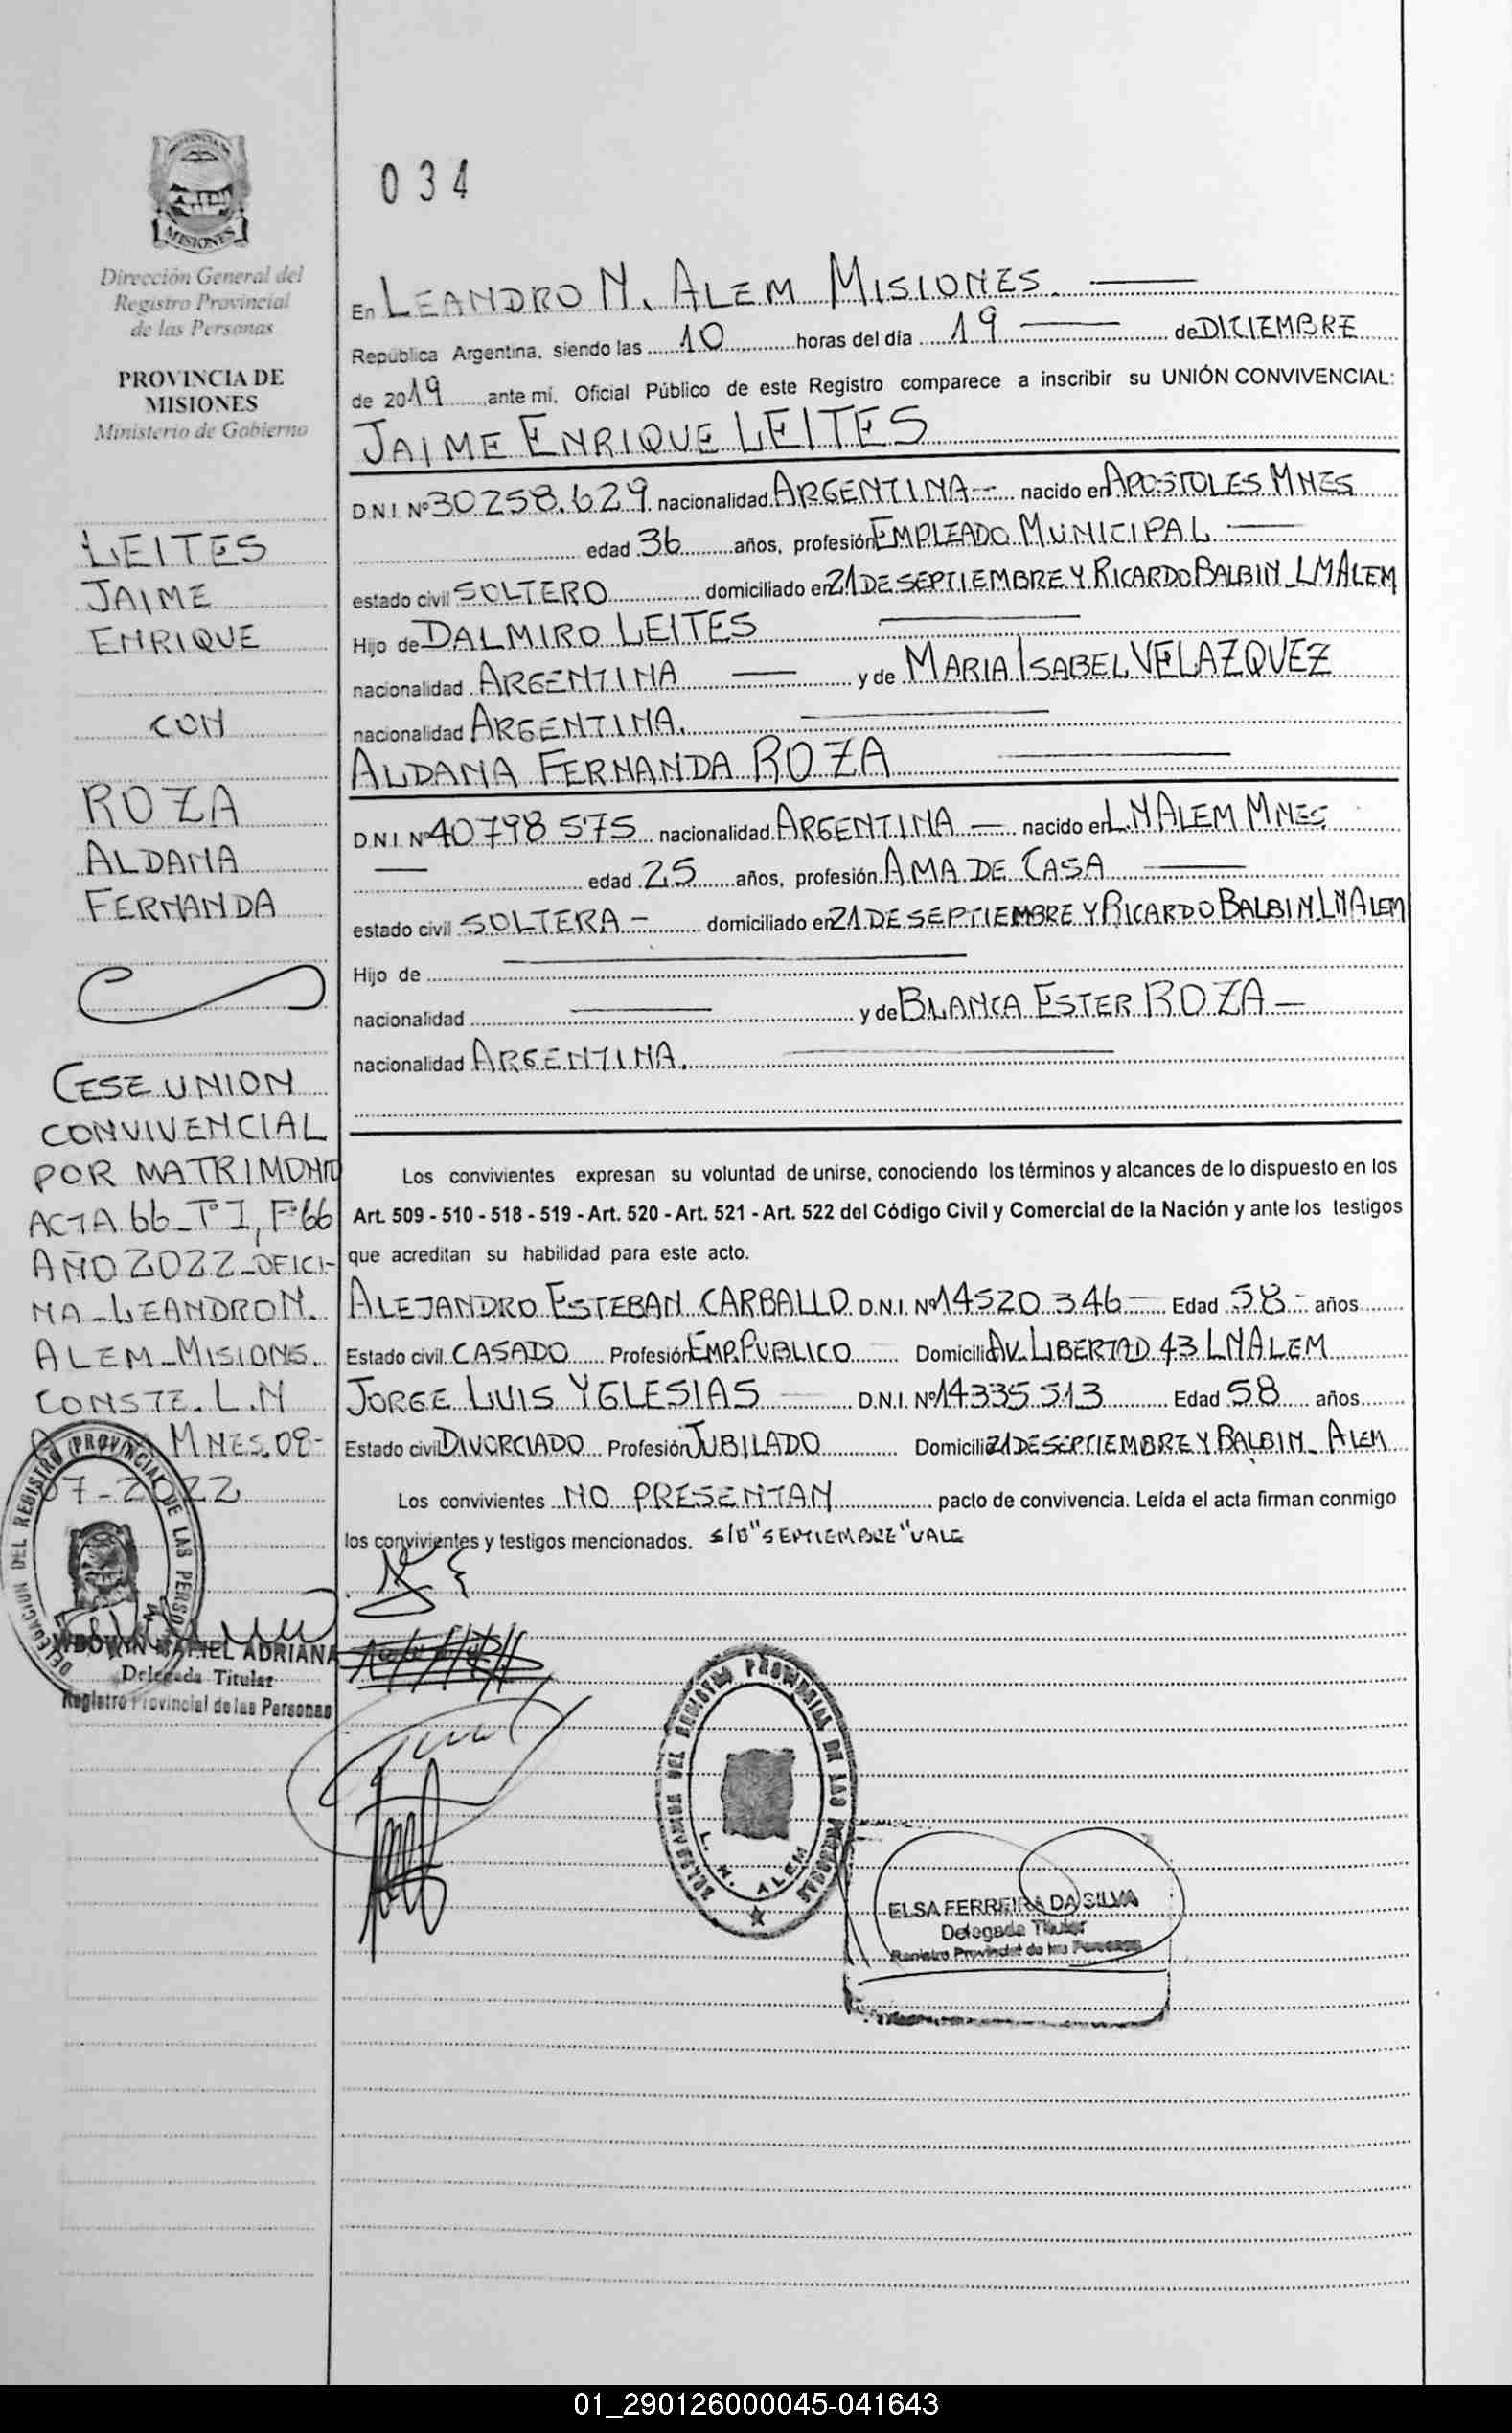 MISIONES
Dirección General del
Registro Provincial
de las Personas
PROVINCIA DE
MISIONES
Ministerio de Gobierno
LEITES
JAIME
ENRIQUE
CON
ROZA
ALDANA
FERNANDA
CESE UNION
CONVIVENCIAL
POR MATRIMONIO
ACTA 66_Tº I, Fº66
AÑO 2022_OFICI-
NA_LEANDRO N.
ALEM_MISIONS.
CONSTE. L.N
MNES. 08-
07-2022
DELEGACION DEL REGISTRO PROVINCIAL DE LAS PERSO
ADRIANA
Delegada Titular
Registro Provincial de las Personas
034
En LEANDRO N. ALEM MISIONES
República Argentina, siendo las 10 horas del día 19 de DICIEMBRE
de 2019 ante mí, Oficial Público de este Registro comparece a inscribir su UNIÓN CONVIVENCIAL:
JAIME ENRIQUE LEITES
D.N.I. Nº 30258.629 nacionalidad ARGENTINA nacido en APOSTOLES MNES
edad 36 años, profesión EMPLEADO MUNICIPAL
estado civil SOLTERO domiciliado en 21 DE SEPTIEMBRE Y RICARDO BALBIN_LNALEM
Hijo de DALMIRO LEITES
nacionalidad ARGENTINA y de MARIA ISABEL VELAZQUEZ
nacionalidad ARGENTINA.
ALDANA FERNANDA ROZA
D.N.I. Nº 40798575 nacionalidad ARGENTINA nacido en L.NALEM MNES
edad 25 años, profesión AMA DE CASA
estado civil SOLTERA - domiciliado en 21 DE SEPTIEMBRE Y RICARDO BALBIN_LNALEM
Hijo de
nacionalidad y de BLANCA ESTER ROZA
nacionalidad ARGENTINA.
Los convivientes expresan su voluntad de unirse, conociendo los términos y alcances de lo dispuesto en los
Art. 509 - 510 - 518 - 519 - Art. 520 - Art. 521 - Art. 522 del Código Civil y Comercial de la Nación y ante los testigos
que acreditan su habilidad para este acto.
ALEJANDRO ESTEBAN CARBALLO D.N.I. Nº 14520346 Edad 58 años
Estado civil CASADO Profesión EMP.PUBLICO Domicilio AV. LIBERTAD 43 LNALEM
JORGE LUIS YGLESIAS D.N.I. Nº 14335513 Edad 58 años
Estado civil DIVORCIADO Profesión JUBILADO Domicilio 21 DE SEPTIEMBRE Y BALBIN_ ALEM
Los convivientes NO PRESENTAN pacto de convivencia. Leída el acta firman conmigo
los convivientes y testigos mencionados. S/B "SEPTIEMBRE" VALE
DELEGACION DEL REGISTRO PROVINCIAL DE LAS PERSONAS
L. N. ALEM
ELSA FERREIRA DA SILVA
Delegada Titular
Registro Provincial de las Personas
01_290126000045-041643